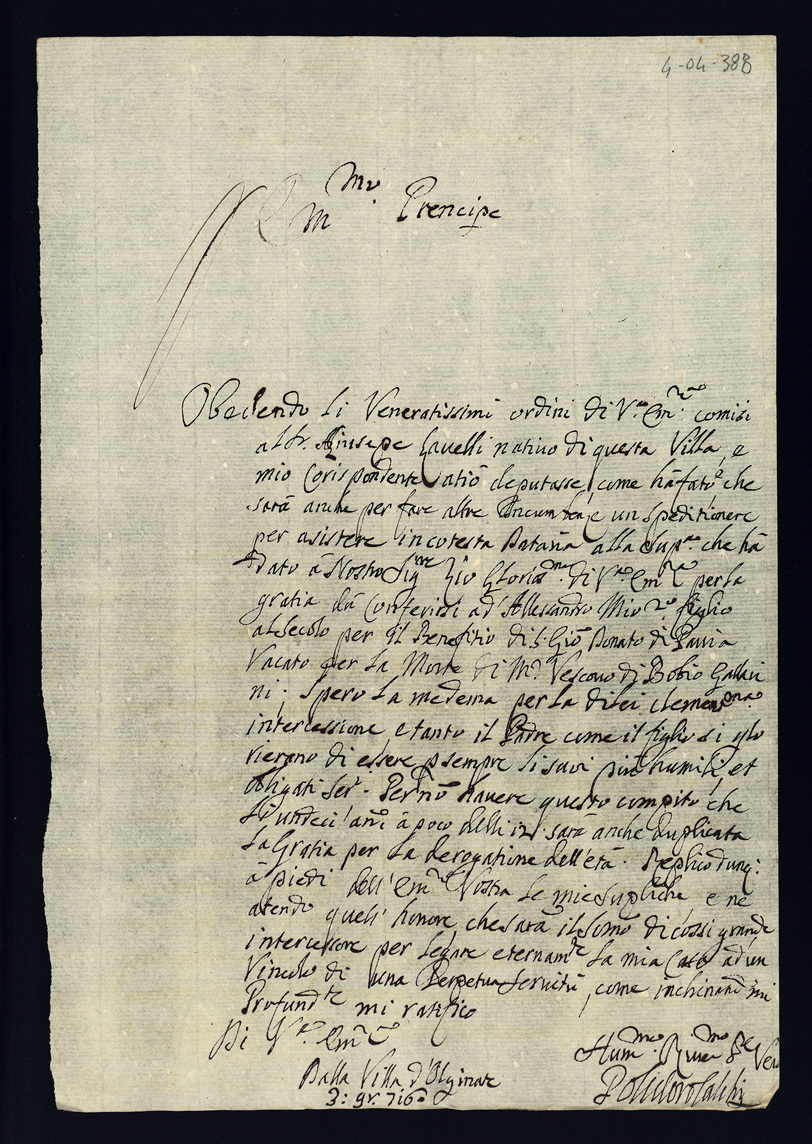 4-04-388
Em.mo Prencipe
Obedendo li Veneratissimi ordini di V.ra Em.za comisi
al Sr. Giusepe Cavelli nativo di questa Villa, e
mio Corispondente acciò deputasse, come hà fato che
sarà anche per fare altre un speditionere
per asistere in cotesta Dataria alla Sup.ca che hà
dato à Nostro Sig.re di V.ra Em.za per la
gratia dà Conferirsi ad' Allesandro Mio figlio
al Secolo per il Benefitio di S. Gio Donato di Pavia
Vacato per la Morte di M.r Vescovo di Bobio Gallari
ni; Spero la medema per la dilei
intercessione, e tanto il Padre come il figlio si glo
rierano di essere p sempre li suoi più humili, et
obligati Ser.i Per nõ havere questo compito che
li undeci añi à poco delli sarà anche duplicata
la Gratia per la derogatione dell'età. Replico dunq:
à piedi dell' Em.za Vostra le mie supliche, e ne
atendo quell' honore, che sarà il somo di cossi grande
intercessore per legare eternam.te la mia Casa ad un
Vincolo di una Perpetua Servitù, come inchinandomi
Profund.te mi ratifico
Di V.ra Em.za
Hum.mo
Dalla Villa d'Olginate
3: 9r. 716